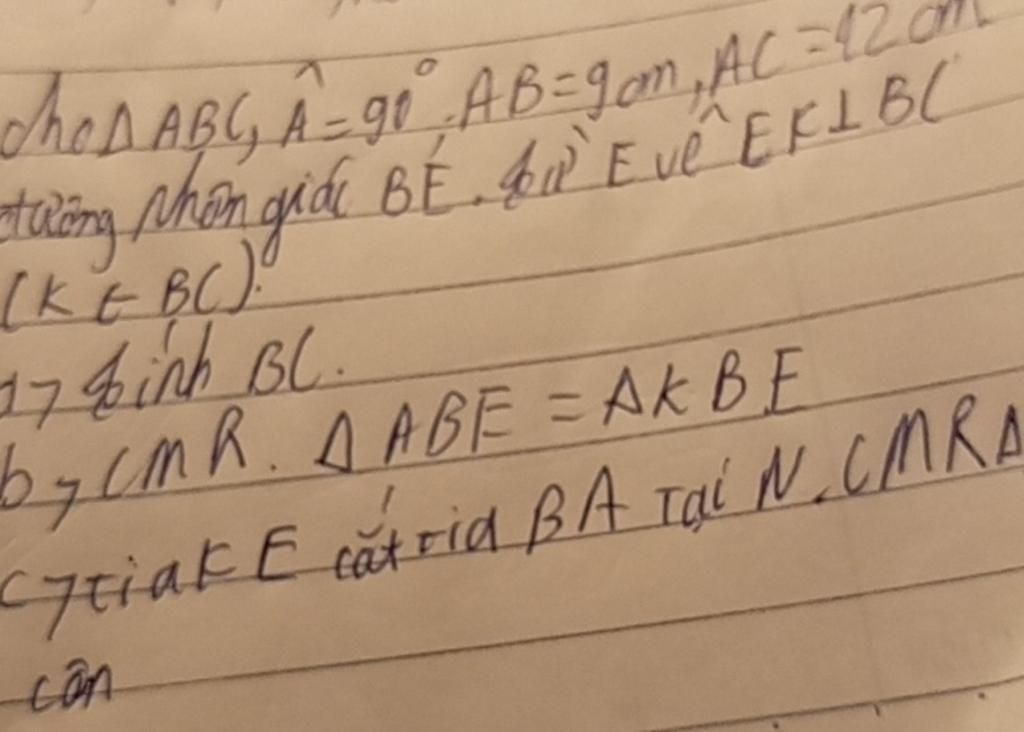 cho Δ ABC, Â = 90°. AB = 9cm, AC = 12 cm
đường phân giác BE. từ E vẽ EK ⊥ BC
(K ∈ BC).
a, tính BC.
b, CMR. Δ ABE = Δ KBE
c, tia KE cắt tia BA tại N. CMR Δ
cân